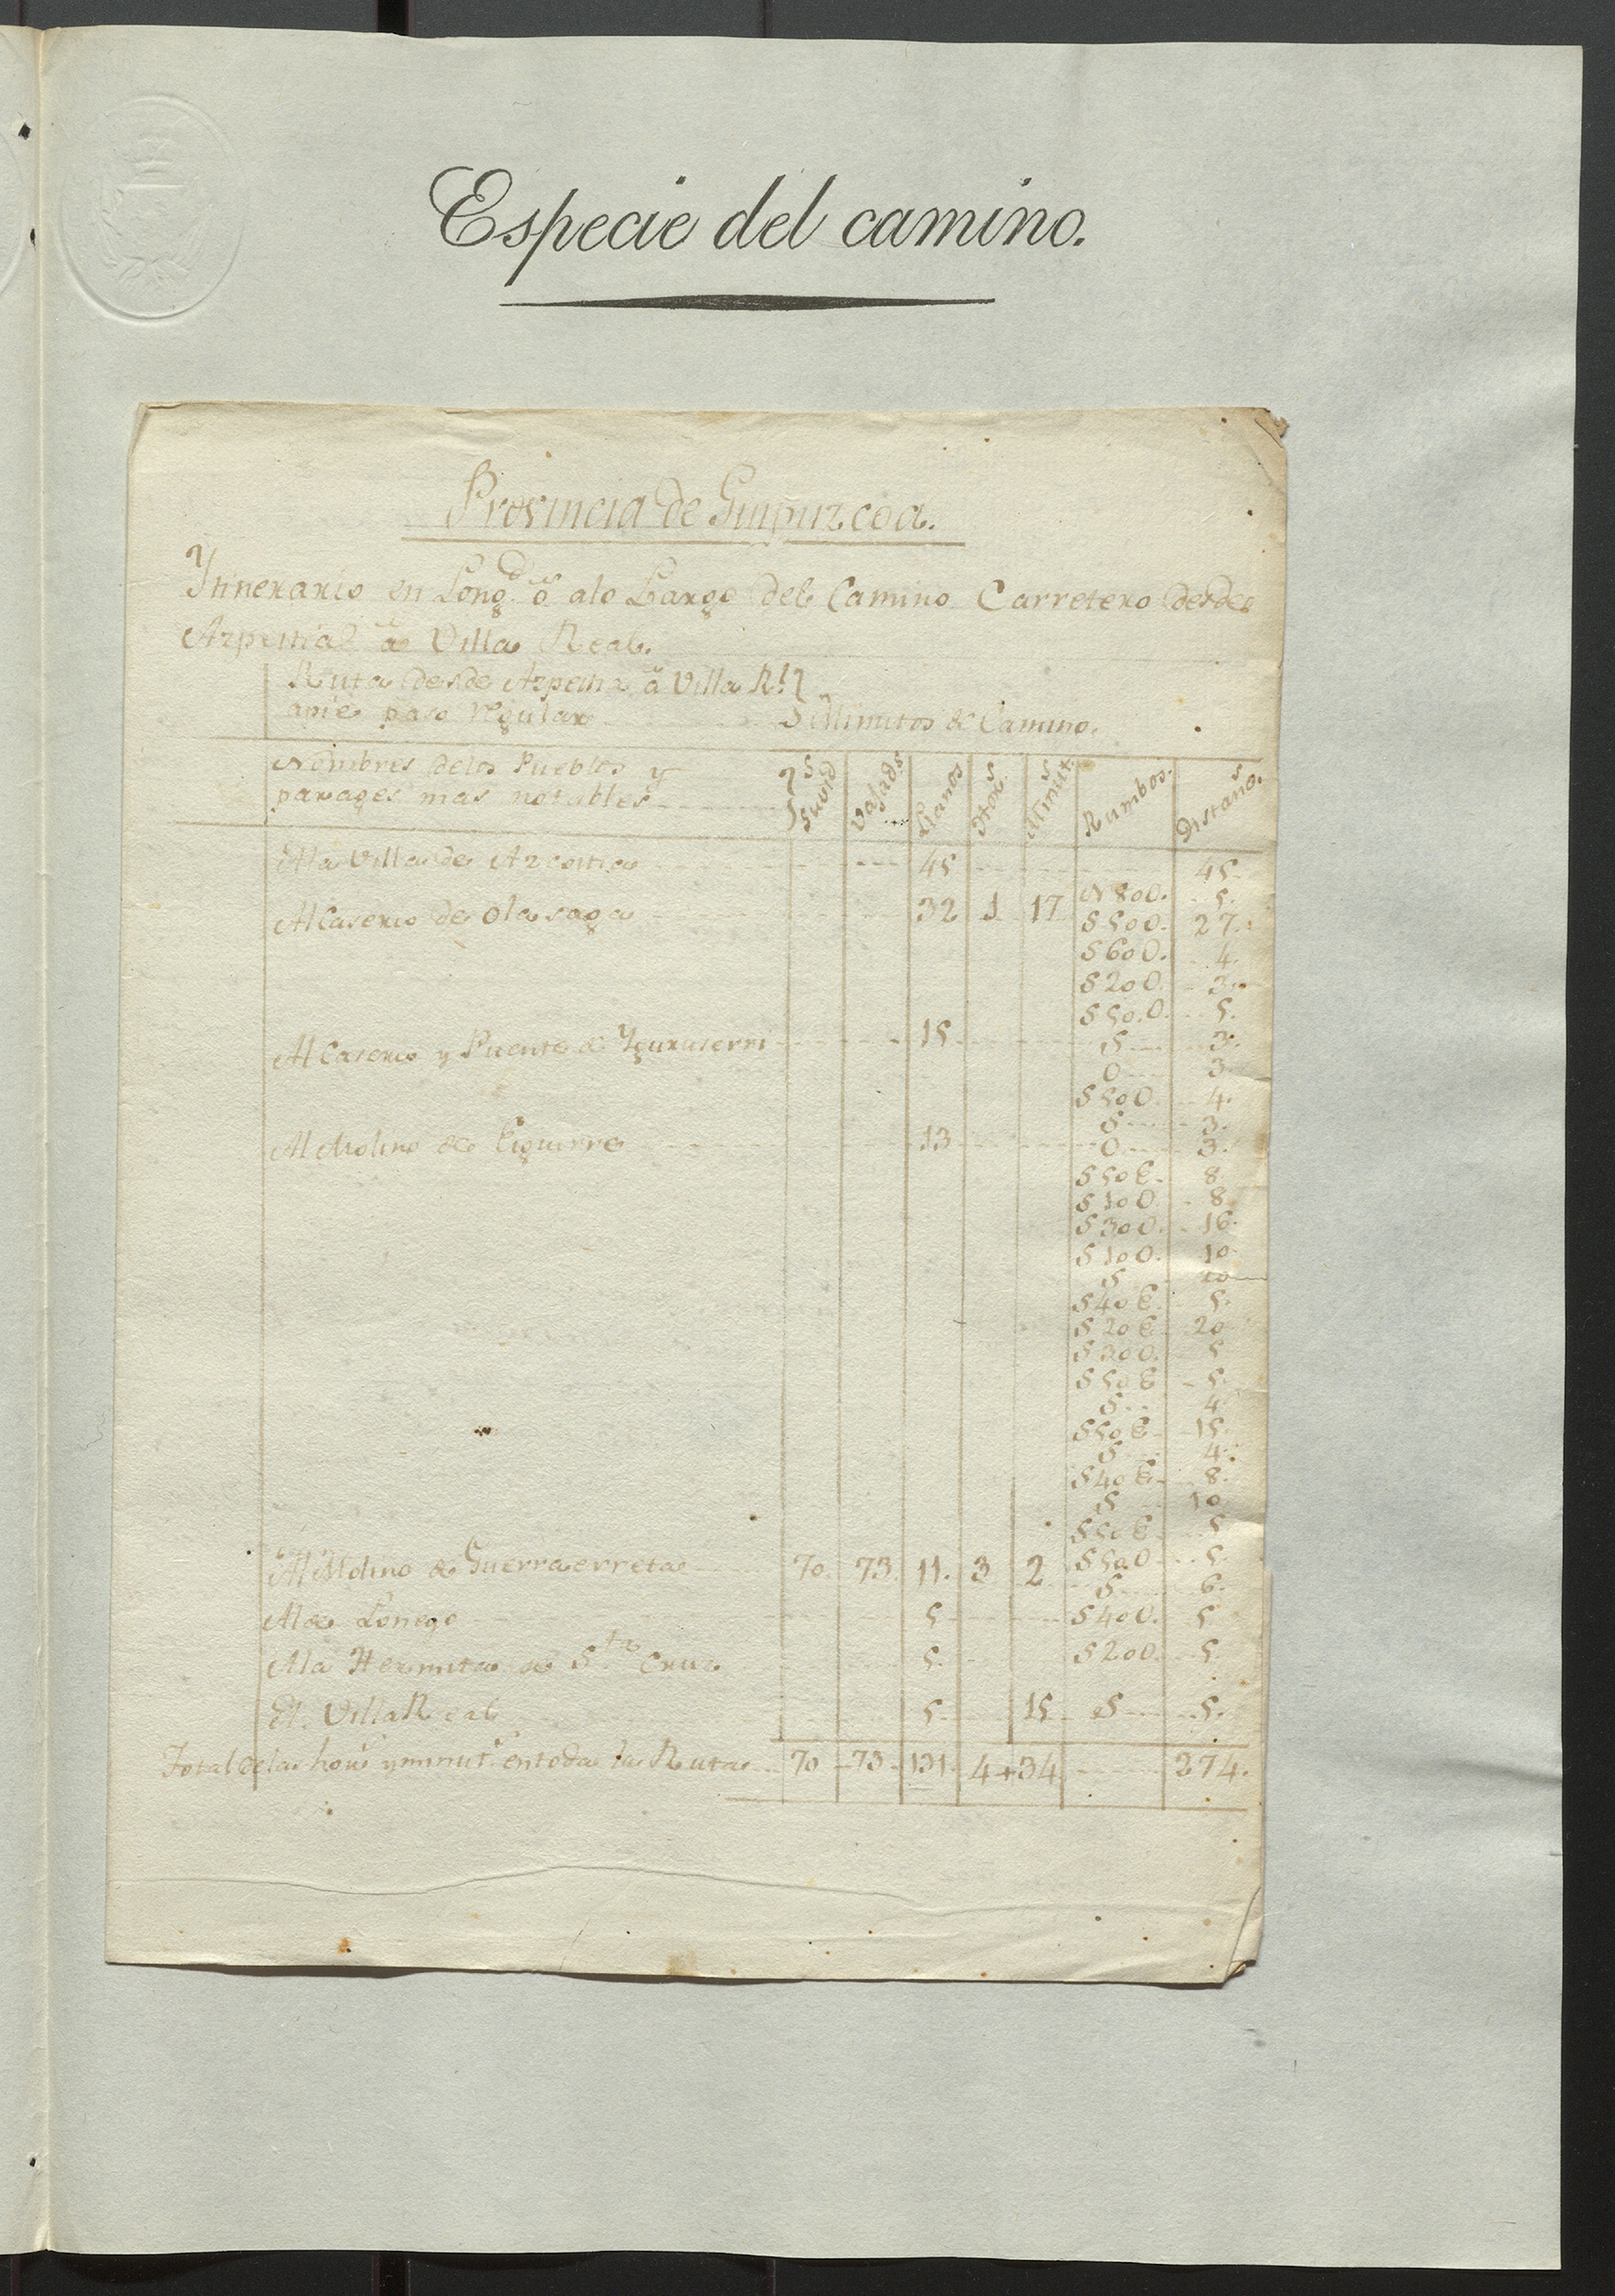 Especie del camino.
Provincia de Guipuzcoa.
Ytinerario en Long.d ó alo Largo del Camino Carretero desde
Azpeitia á Villa Real.
Ruta desde Azpeitia á Villa Rl.
apie paso regular Minutos de Camino.
Nombres delos Pueblos y
parages mas notables Suvid.s Vajad.s Llanos Hor.s Minut.s Rumbos. Distan.s
Ala Villa de Azcoitia 45 45
N 80 O. 5.
Al Caserio de Olasaga 32 1 17 S 50 O. 27.
S 60 O. 4.
S 20 O. 3.
S 50 O. 5.
Al Caserio y Puente de Yguruserri 15 S 3.
O 3.
S 50 O. 4.
S 3.
Al Molino de Eiguirre 13 O 3.
S 50 E. 8
S 10 O 8
S 30 O. 16.
S 10 O. 10
S 10
S 40 E. 5.
S 20 E 20
S 30 O. 5
S 50 E 5.
S 4
S 50 E 15.
S 4.
S 40 E 8.
S 10
S 50 E 5
Al Molino de Guerraerreta 70. 73. 11. 3 2 S 50 O 5.
S 6.
Al de Loriego 5 S 40 O. 5
Ala Hermita de S.ta Cruz 5. S 20 O. 5.
A. Villa Real 5 15 S 5.
Total delas hor.s y minut.s en toda la Ruta 70 73 131. 4+34 274.